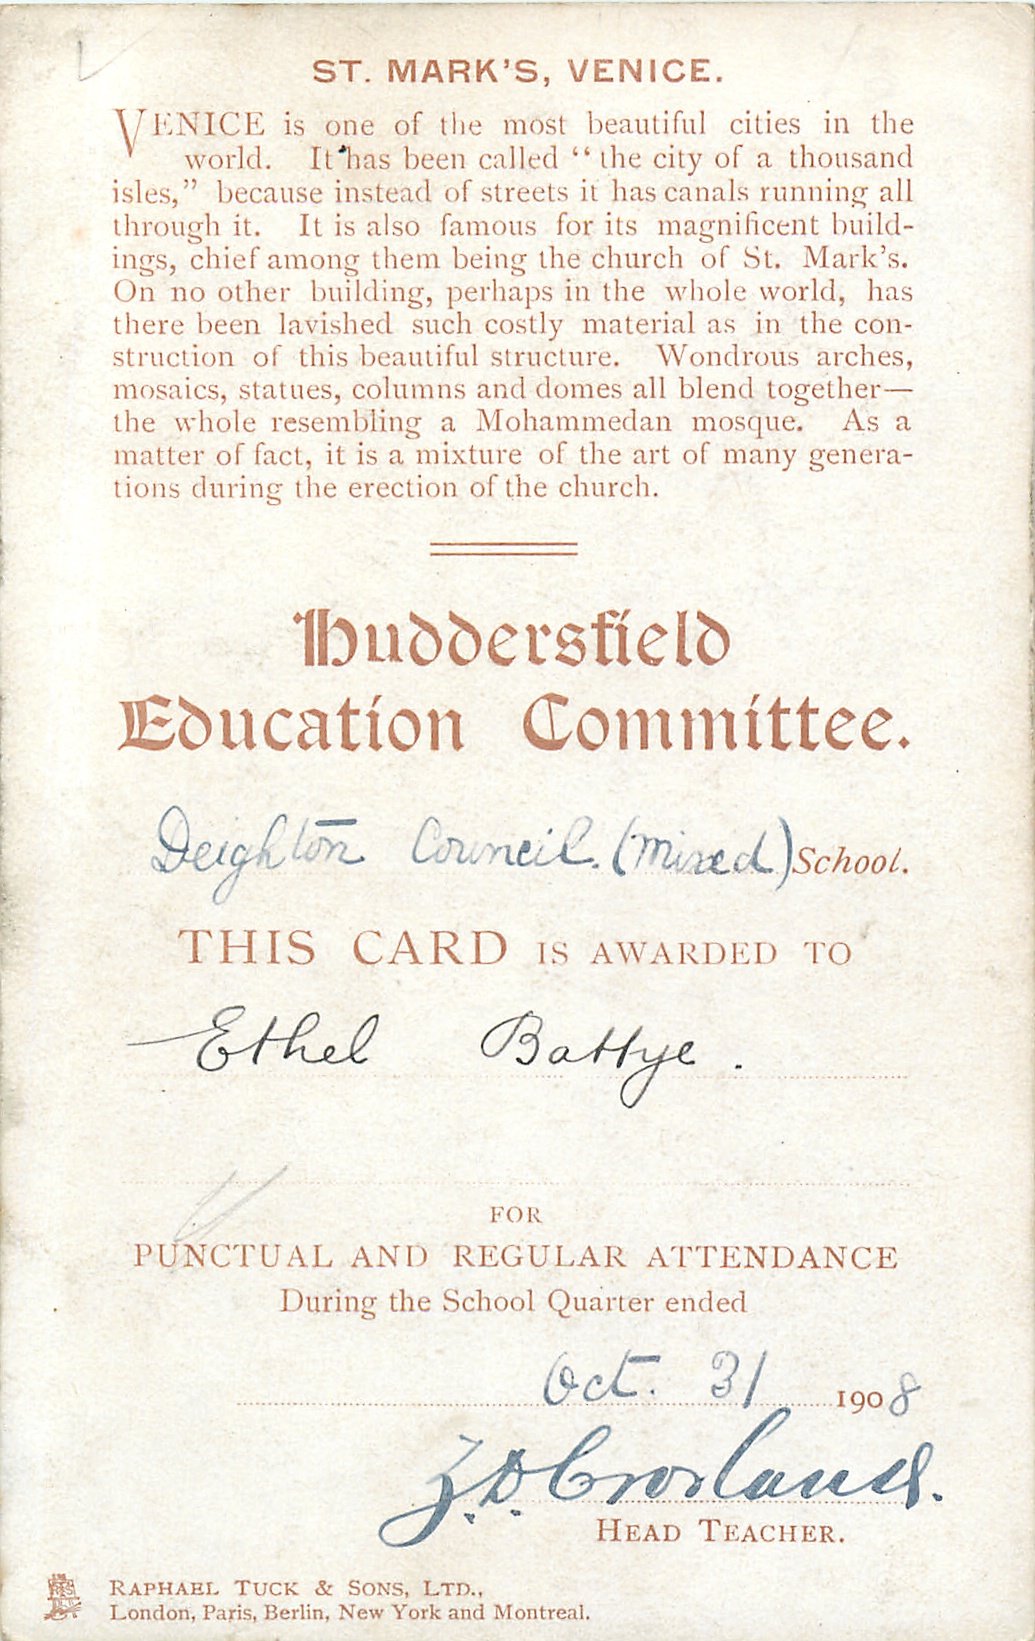 ST. MARK'S, VENICE.
VENICE is one of the most beautiful cities in the
world. It has been called “the city of a thousand
isles,” because instead of streets it has canals running all
through it. It is also famous for its magnificent build-
ings, chief among them being the church of St. Mark's.
On no other building, perhaps in the whole world, has
there been lavished such costly material as in the con-
struction of this beautiful structure. Wondrous arches,
mosaics, statues, columns and domes all blend together—
the whole resembling a Mohammedan mosque. As a
matter of fact, it is a mixture of the art of many genera-
tions during the erection of the church.
Huddersfield
Education Committee.
Deighton Council. (Mixed) School.
THIS CARD IS AWARDED TO
Ethel Battye.
FOR
PUNCTUAL AND REGULAR ATTENDANCE
During the School Quarter ended
Oct. 31 1908
HEAD TEACHER.
RAPHAEL TUCK & SONS, LTD.,
London, Paris, Berlin, New York and Montreal.